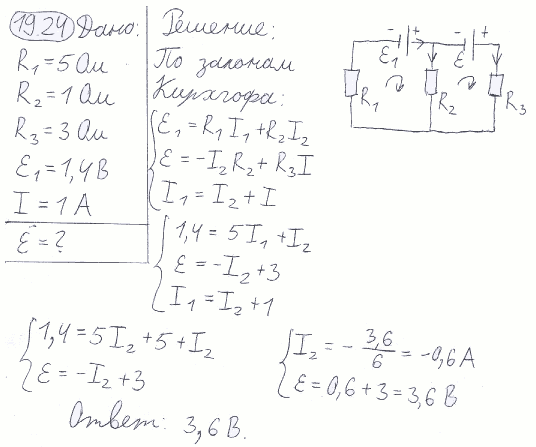 19.24 Дано:
R₁ = 5 Ом
R₂ = 1 Ом
R₃ = 3 Ом
Ɛ₁ = 1,4 В
I = 1 А
Ɛ = ?
Решение:
По законам
Кирхгофа:
Ɛ₁ = R₁I₁ + R₂I₂
Ɛ = -I₂R₂ + R₃I
I₁ = I₂ + I
1,4 = 5I₁ + I₂
Ɛ = -I₂ + 3
I₁ = I₂ + 1
- + - +
Ɛ₁ Ɛ
R₁ R₂ R₃
1,4 = 5I₂ + 5 + I₂
Ɛ = -I₂ + 3
I₂ = - 3,6/6 = -0,6 А
Ɛ = 0,6 + 3 = 3,6 В
Ответ: 3,6 В.